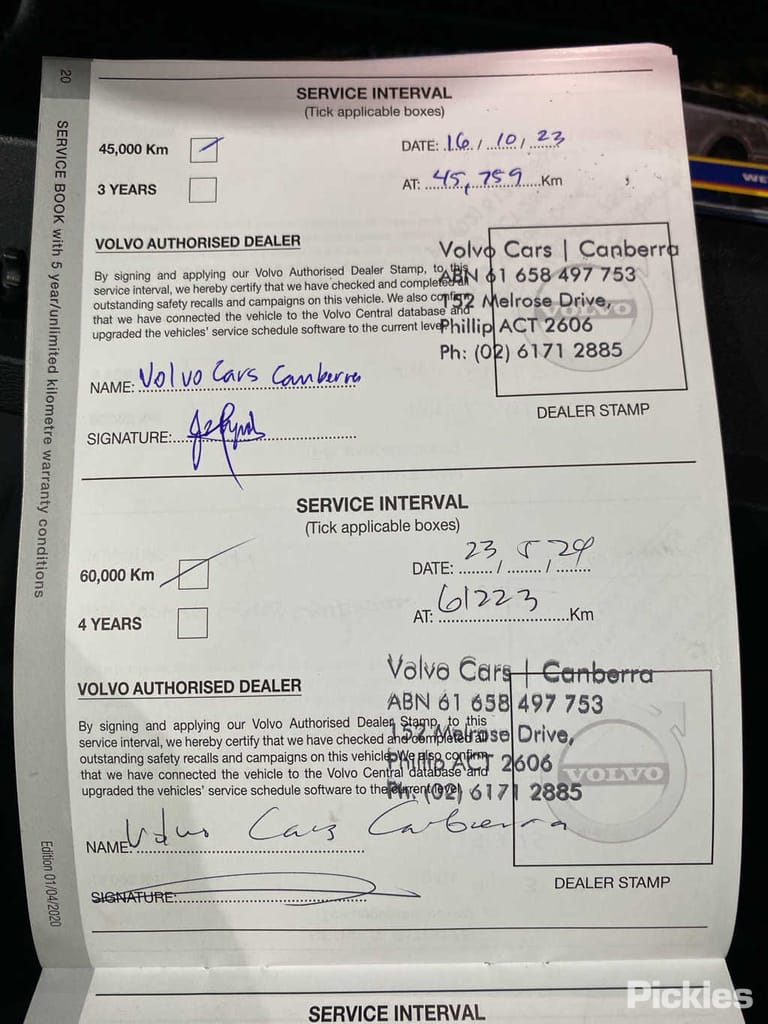 20
SERVICE BOOK with 5 year/unlimited kilometre warranty conditions
Edition 01/04/2020
SERVICE INTERVAL
(Tick applicable boxes)
45,000 Km
DATE: 16 / 10 / 23
3 YEARS
AT: 45,759 Km
VOLVO AUTHORISED DEALER
By signing and applying our Volvo Authorised Dealer Stamp, to this
service interval, we hereby certify that we have checked and completed all
outstanding safety recalls and campaigns on this vehicle. We also confirm
that we have connected the vehicle to the Volvo Central database and
upgraded the vehicles' service schedule software to the current level.
Volvo Cars | Canberra
ABN 61 658 497 753
152 Melrose Drive,
Phillip ACT 2606
Ph: (02) 6171 2885
VOLVO
NAME: Volvo Cars Canberra
DEALER STAMP
SIGNATURE:
SERVICE INTERVAL
(Tick applicable boxes)
60,000 Km
DATE: 23 / 5 / 24
4 YEARS
AT: 61223 Km
VOLVO AUTHORISED DEALER
By signing and applying our Volvo Authorised Dealer Stamp, to this
service interval, we hereby certify that we have checked and completed all
outstanding safety recalls and campaigns on this vehicle. We also confirm
that we have connected the vehicle to the Volvo Central database and
upgraded the vehicles' service schedule software to the current level.
Volvo Cars | Canberra
ABN 61 658 497 753
152 Melrose Drive,
Phillip ACT 2606
Ph: (02) 6171 2885
VOLVO
NAME Volvo Cars Canberra
DEALER STAMP
SIGNATURE:
SERVICE INTERVAL
WE
Pickles